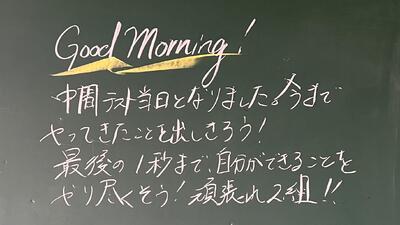 Good Morning!
中間テスト当日となりました。今まで
やってきたことを出しきろう!
最後の1秒まで、自分ができることを
やり尽くそう!頑張れ2組!!